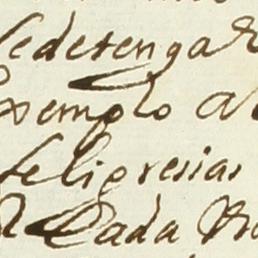 Sedetenga
Exemplo a
feligresias
Cada